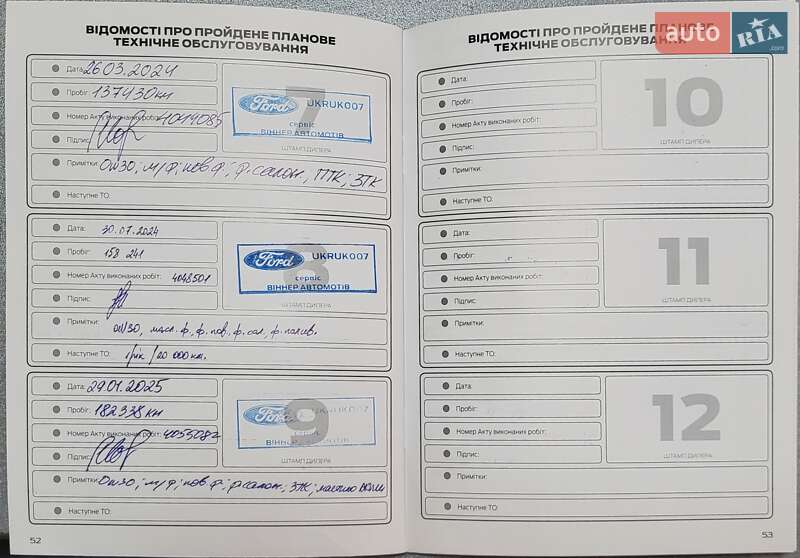 ВІДОМОСТІ ПРО ПРОЙДЕНЕ ПЛАНОВЕ
ТЕХНІЧНЕ ОБСЛУГОВУВАННЯ
Дата: 26.03.2024
Пробіг: 137430 км
Номер Акту виконаних робіт: 4014085
Підпис:
7
Ford UKRUK007
сервіс
ВІННЕР АВТОМОТІВ
ШТАМП ДИЛЕРА
Примітки: 0w30; м/ф; пов ф; ф.салон., ПТК; ЗТК
Наступне ТО:
Дата: 30.07.2024
Пробіг: 158 241
Номер Акту виконаних робіт: 4048501
Підпис:
8
Ford UKRUK007
сервіс
ВІННЕР АВТОМОТІВ
ШТАМП ДИЛЕРА
Примітки: 0w30, масл.ф, ф.пов, ф.сал, ф.палив.
Наступне ТО: 1рік /20 000км.
Дата: 29.01.2025
Пробіг: 182338 км
Номер Акту виконаних робіт: 4055082
Підпис:
9
Ford UKRUK007
сервіс
ВІННЕР АВТОМОТІВ
ШТАМП ДИЛЕРА
Примітки: 0w30; м/ф; пов ф; ф.салон; ЗТК; мастило
Наступне ТО:
52
ВІДОМОСТІ ПРО ПРОЙДЕНЕ ПЛАНОВЕ
ТЕХНІЧНЕ ОБСЛУГОВУВАННЯ
auto RIA.com
Дата:
Пробіг:
Номер Акту виконаних робіт:
Підпис:
10
ШТАМП ДИЛЕРА
Примітки:
Наступне ТО:
Дата:
Пробіг:
Номер Акту виконаних робіт:
Підпис:
11
ШТАМП ДИЛЕРА
Примітки:
Наступне ТО:
Дата:
Пробіг:
Номер Акту виконаних робіт:
Підпис:
12
ШТАМП ДИЛЕРА
Примітки:
Наступне ТО:
53